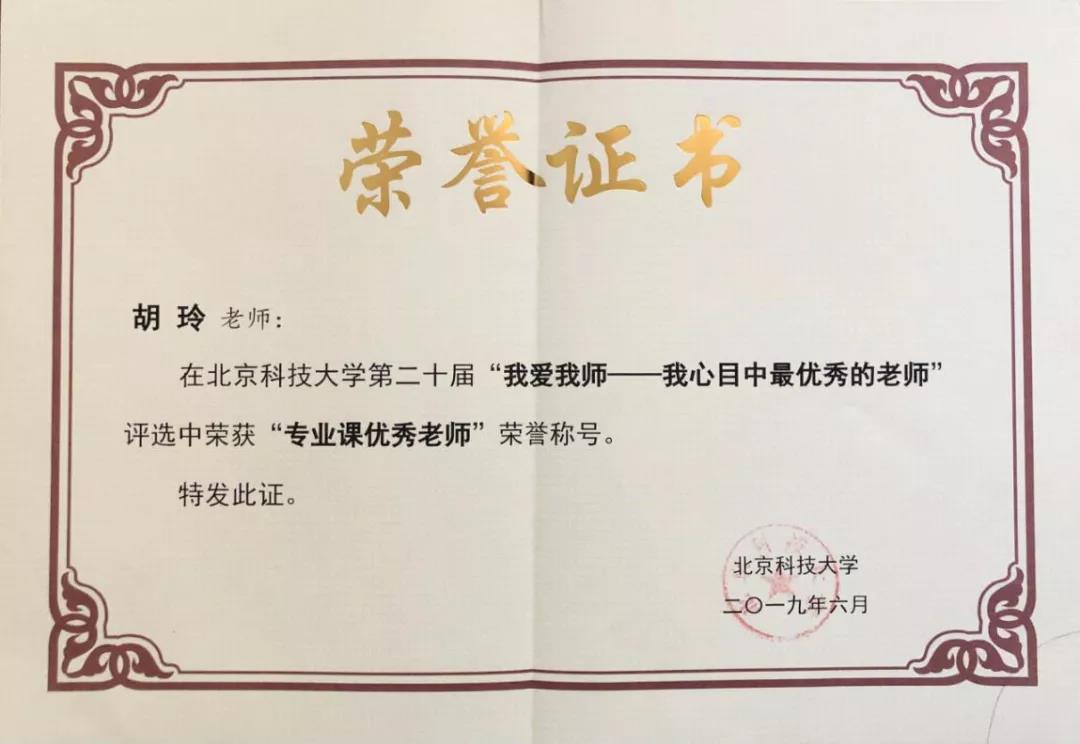 荣誉证书
胡 玲 老师：
在北京科技大学第二十届“我爱我师——我心目中最优秀的老师”
评选中荣获“专业课优秀老师”荣誉称号。
特发此证。
北京科技大学
二〇一九年六月